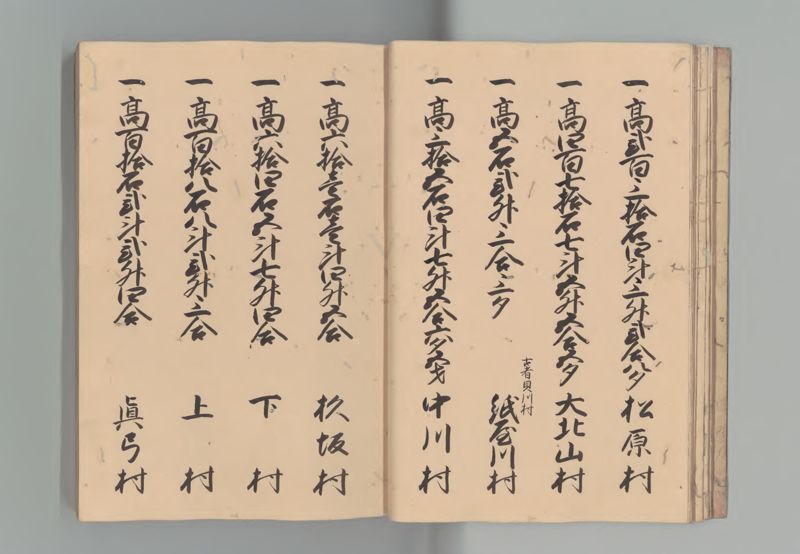 一高弐百三拾石四斗三升弐合八夕 松原村
一高四百七拾石七斗五升五合五夕 大北山村
一高五石弐升三合三夕 紙屋川村
古者貝川村
一高三拾五石四斗七升五合六夕五才 中川村
一高六拾壱石壱斗四升五合 杦坂村
一高六拾四石五斗七升四合 下村
一高百拾八石八斗弐升三合 上村
一高百拾石弐斗弐升四合 眞弓村